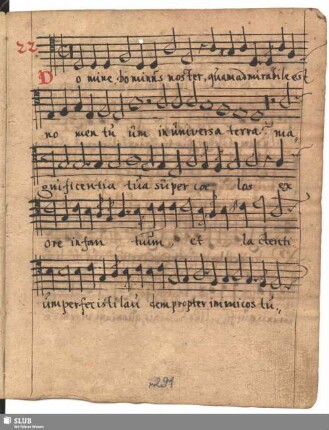 22.
Domine Dominus noster, quam admirabile est
nomen tuum in universa terra: ma,
gnificentia tua super coelos ex
ore infantium, et lactenti
um perfecisti laudem propter inimicos tu,,
291
SLUB